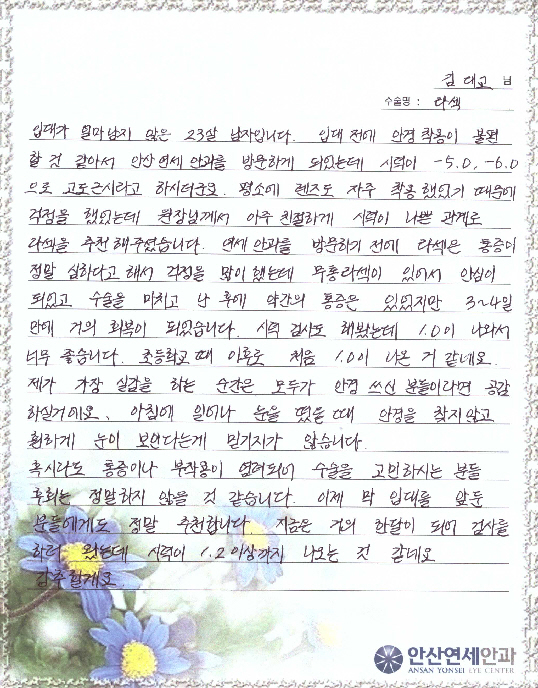 김대고 님
수술명 : 라섹
입대가 얼마남지 않은 23살 남자입니다. 입대 전에 안경 착용이 불편
할 것 같아서 안산연세 안과를 방문하게 되었는데 시력이 -5.0, -6.0
으로 고도근시라고 하시더군요. 평소에 렌즈도 자주 착용했었기 때문에
걱정을 했었는데 원장님께서 아주 친절하게 시력이 나쁜 관계로
라섹을 추천해주셨습니다. 연세안과를 방문하기 전에 라섹은 통증이
정말 심하다고 해서 걱정을 많이 했는데 무통라섹이 있어서 안심이
되었고 수술을 마치고 난 후에 약간의 통증은 있었지만 3~4일
안에 거의 회복이 되었습니다. 시력 검사도 해봤는데 1.0이 나와서
너무 좋습니다. 초등학교 때 이후로 처음 1.0이 나온 거 같네요.
제가 가장 실감을 하는 순간은 모두가 안경 쓰신 분들이라면 공감
하실거에요. 아침에 일어나 눈을 떴을 때 안경을 찾지않고
환하게 눈이 보인다는게 믿기지가 않습니다.
혹시라도 통증이나 부작용이 염려되어 수술을 고민하시는 분들
후회는 정말하지 않을 것 같습니다. 이제 막 입대를 앞둔
분들에게도 정말 추천합니다. 지금은 거의 한달이 되어 검사를
하러 왔는데 시력이 1.2이상까지 나오는 것 같네요
강추할게요
안산연세안과
ANSAN YONSEI EYE CENTER